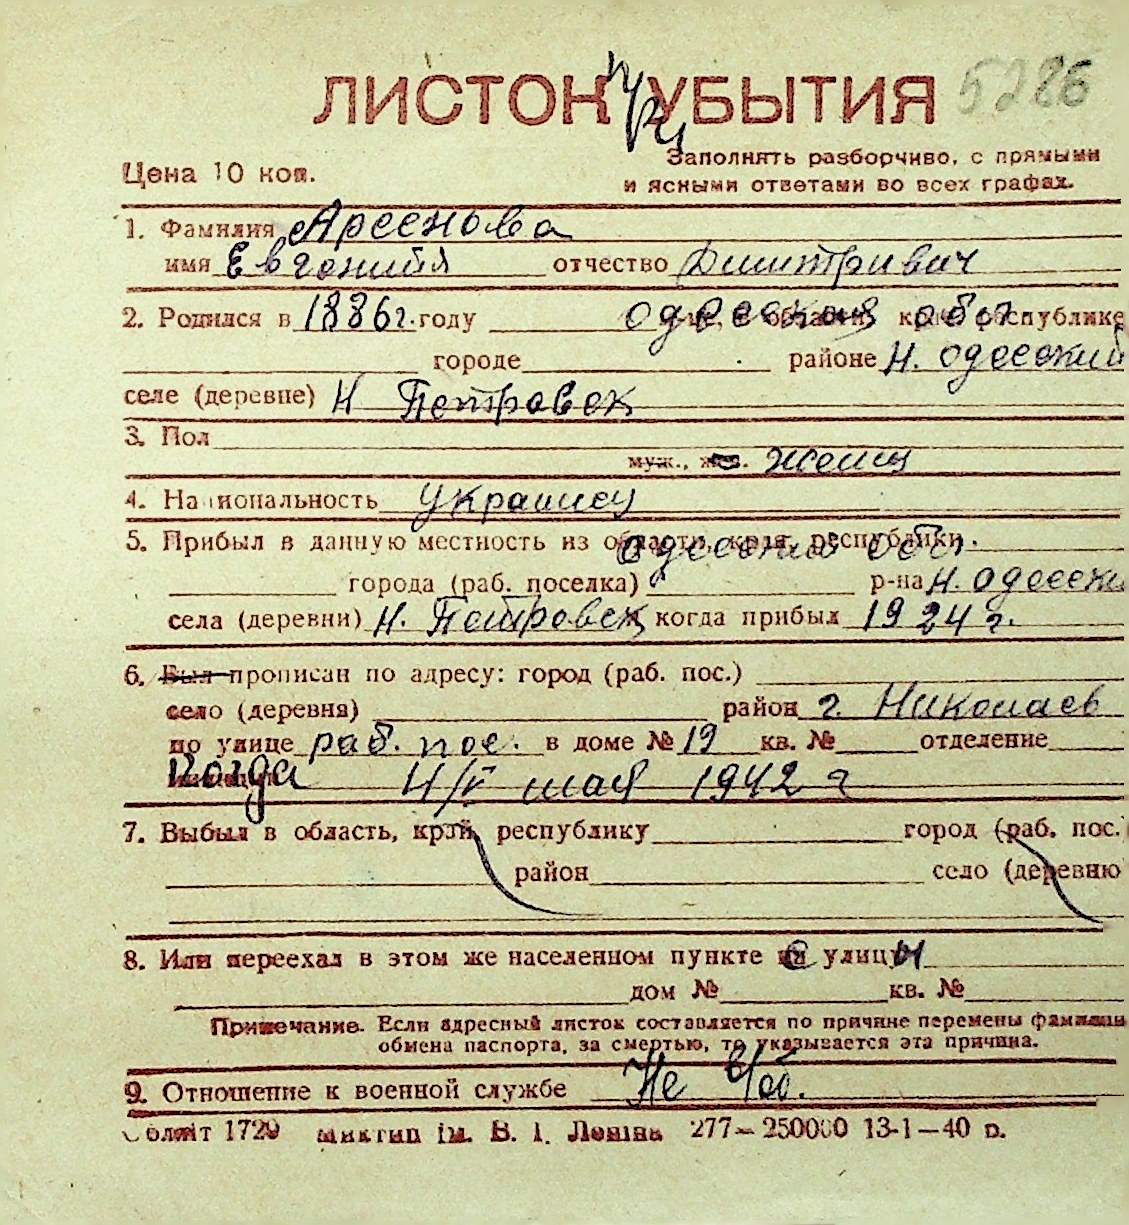 ЛИСТОК УБЫТИЯ 5286
Цена 10 коп.
Заполнять разборчиво, с прямыми
и ясными ответами во всех графах.
1. Фамилия Арсеньева
имя Евгенийя отчество Димитривич
2. Родился в 1886 г. году одесская обл республике
городе районе Н. одесский
селе (деревне) Н Петровск
3. Пол
муж., жен. женщ
4. Национальность украинец
5. Прибыл в данную местность из области, края, республики.
города (раб. поселка) р-на Н. одесски
села (деревни) Н. Петровск когда прибыл 1924 г.
6. Был прописан по адресу: город (раб. пос.)
село (деревня) район г. Николаев
по улице раб. пос. в доме № 19 кв. № отделение
когда 4/V мая 1942 г
7. Выбыл в область, край, республику город (раб. пос.)
район село (деревню
8. Или переехал в этом же населенном пункте с улицы
дом № кв. №
Примечание. Если адресный листок составляется по причине перемены фамилии
обмена паспорта, за смертью, то указывается эта причина.
9. Отношение к военной службе Не
Облліт 1720 ім. В. І. Леніна 277—250000 13-1—40 р.